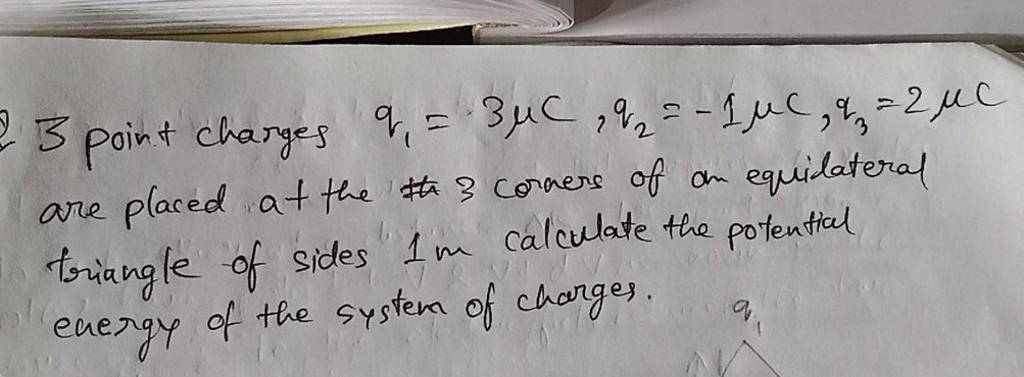 Q 3 point charges q₁ = 3μC, q₂ = -1μC, q₃ = 2μC
are placed at the 3 corners of an equilateral
triangle of sides 1m calculate the potential
energy of the system of charges.
q₁